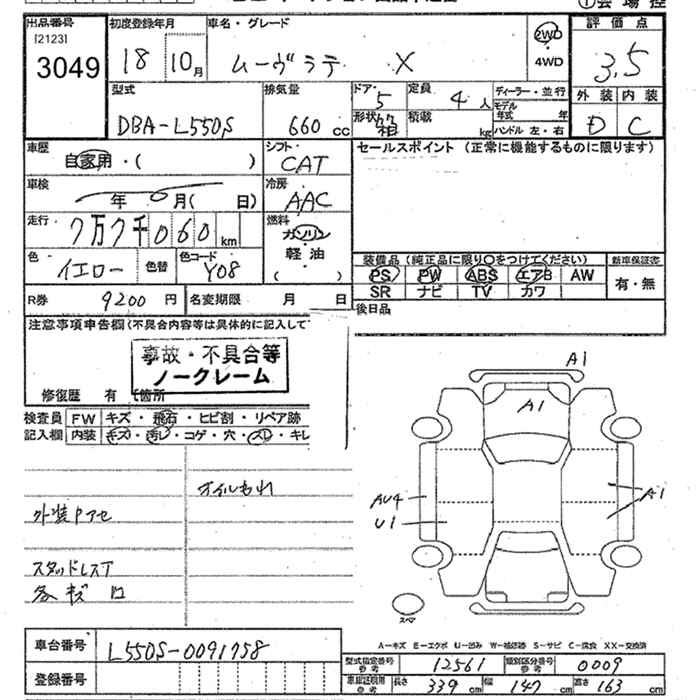 出品番号 初度登録年月 車名・グレード 評価点
[2123]
3049 18 10月 ムーヴラテ X 2WD 4WD 3.5
型式 排気量 ドア・5 定員 4人 ディーラー・並行 外装 内装
DBA-L550S 660cc 形状 箱 積載 kg モデル年式 年 D C
ハンドル 左・右
車歴 シフト セールスポイント (正常に機能するものに限ります)
自家用・( ) CAT
車検 冷房
年 月( 日) AAC
走行 7万7千060km 燃料 ガソリン
軽油
( )
色 イエロー 色替 色コード Y08
装備品 (純正品に限り○をつけてください) 新車保証書
PS PW ABS エアB AW 有・無
SR ナビ TV カワ
R券 9200円 名変期限 月 日
後日品
注意事項申告欄(不具合内容等は具体的に記入して
事故・不具合等
ノークレーム
修復歴 有 (箇所
検査員 FW キズ・飛石・ヒビ割・リペア跡
記入欄 内装 キズ・汚レ・コゲ・穴・スレ・キレ
オイルもれ
外装アセ
スタッドレスT
A1
A1
AU4
U1
A1
スペア
A-キズ E-エクボ U-凹み W-補修跡 S-サビ C-腐食 XX-交換済
車台番号 L550S-0091758
登録番号
型式指定番号 参考 12561 類別区分番号 参考 0009
長さ 339cm 幅 147cm 高さ 163cm